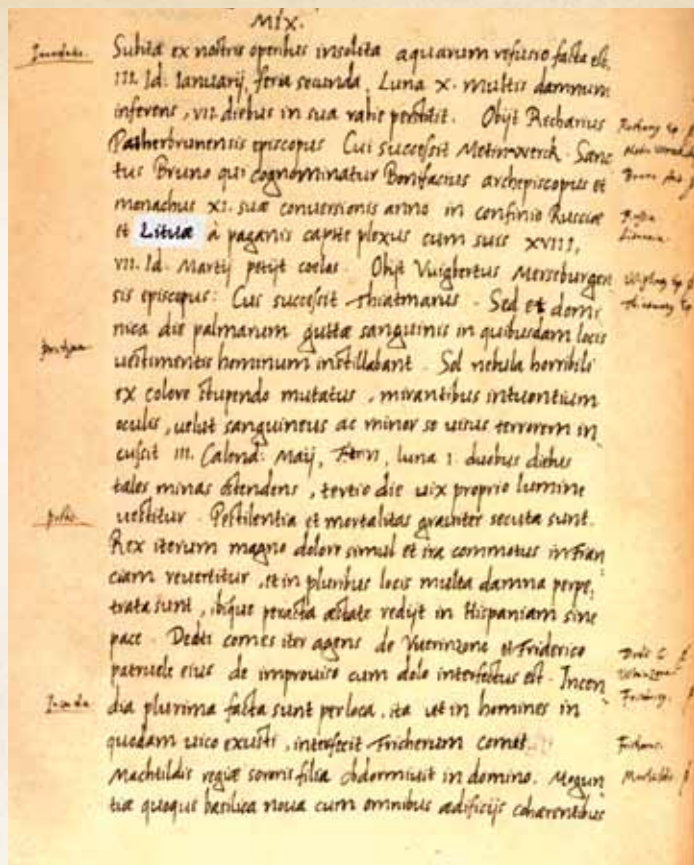 MIX.
Subita ex nostris operibus insolita aquarum refusio facta est.
III. Id. Ianuarij, feria secunda, Luna X. multis damnum
inferens, VII. diebus in sua rabie perstitit. Obijt Recharius
Patherbrunensis episcopus Cui successit Metinwerck. Sanc
tus Bruno qui cognominatur Bonifacius archepiscopus et
monachus XI. suæ conversionis anno in confinio Rusciæ
et Lituæ à paganis capite plexus cum suis XVIII,
VII. Id. Martij petijt coelos. Obijt Vuigbertus Merseburgen
sis episcopus: Cui successit Thiatmarus. Sed et domi
nica die palmarum guttæ sanguinis in quibusdam locis
uestimentis hominum instillabant. Sol nebula horribili
ex colore stupendo mutatus, mirantibus intuentium
oculis, uelut sanguineus ac minor se uisus terrorem in
cussit III. Calend: Maij, luna I. duobus diebus
tales minas ostendens, tertio die uix proprio lumine
uestitur. Pestilentia et mortalitas graviter secuta sunt.
Rex iterum magno dolore simul et ira commotus in Fran
ciam revertitur, et in pluribus locis multa damna perpe,
trata sunt, ibique peracta æstate redijt in Hispaniam sine
pace. Dedti comes iter agens de Vuerinzone et Friderico
patruele eius de improuiso cum dolo interfectus est. Incen
dia plurima facta sunt per loca, ita ut in homines in
quodam uico exusti, interfecit Fricherum comet.
Machtildis regiæ sororis filia obdormiuit in domino. Mogun
tiæ quoque basilica noua cum omnibus ædificijs cohærentibus